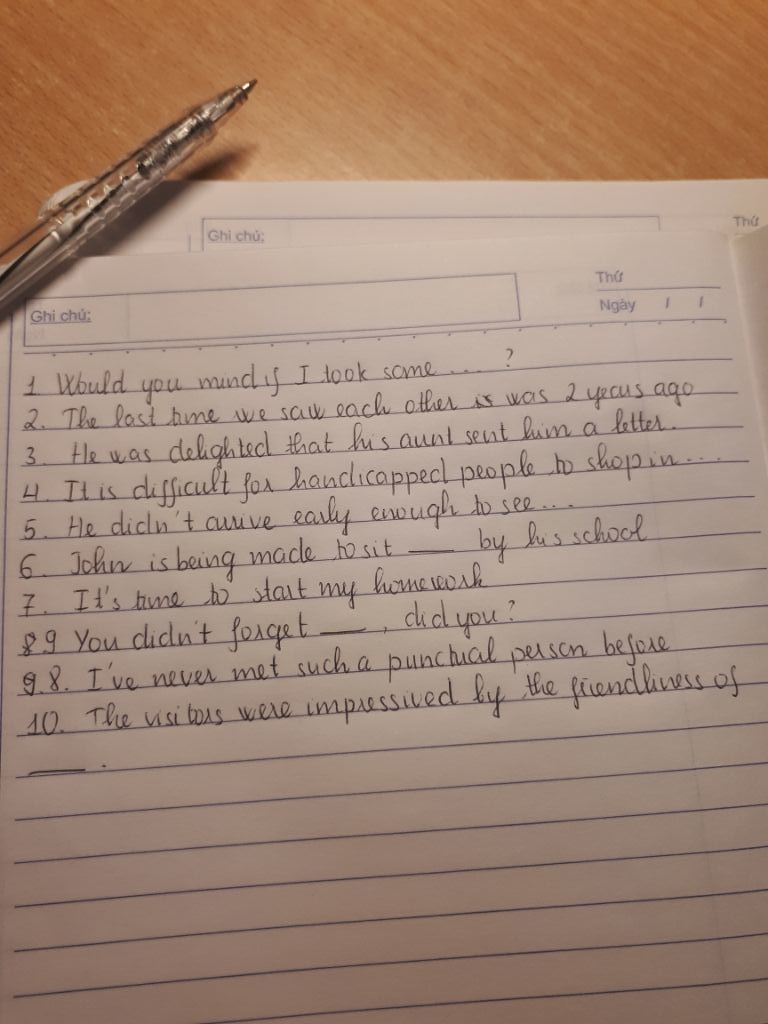 Ghi chú:
Thứ
Ghi chú:
Thứ
Ngày / /
1 Would you mind if I took some .... ?
2. The last time we saw each other is was 2 years ago
3. He was delighted that his aunt sent him a letter.
4. It is difficult for handicapped people to shop in ....
5. He didn't arrive early enough to see ...
6. John is being made to sit ___ by his school
7. It's time to start my homework
8 9 You didn't forget ___ , did you?
9 8. I've never met such a punctual person before
10. The visitors were impressived by the friendliness of
___ .